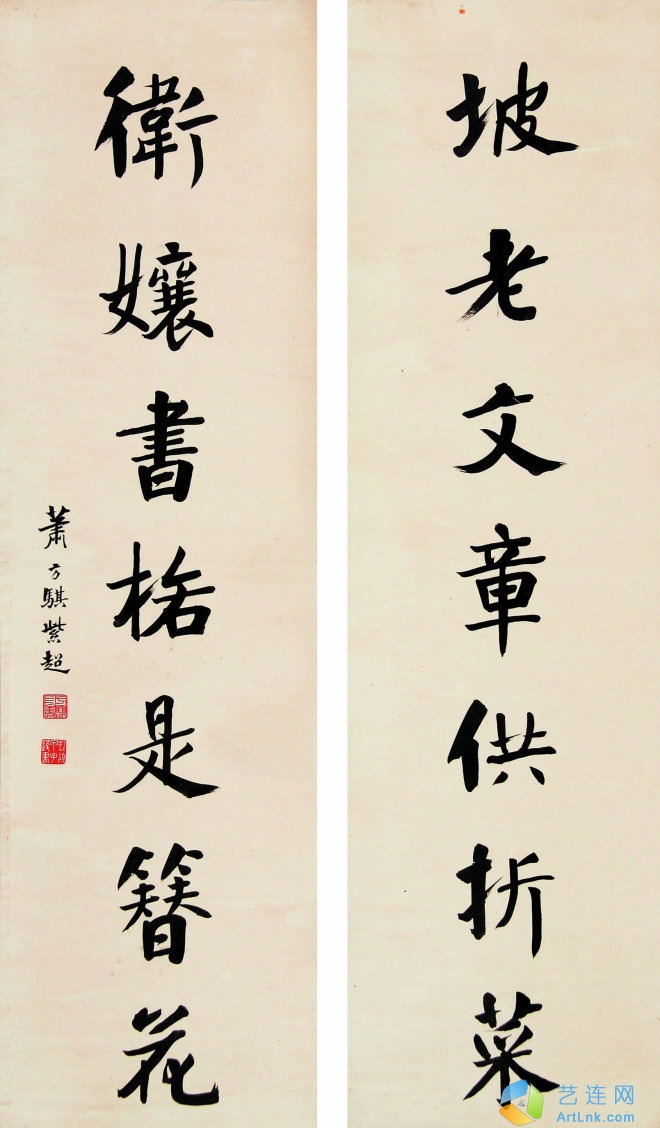 坡老文章供折菜
衛孃書格是簪花
蕭方騏紫超
艺连网
ArtLnk.com